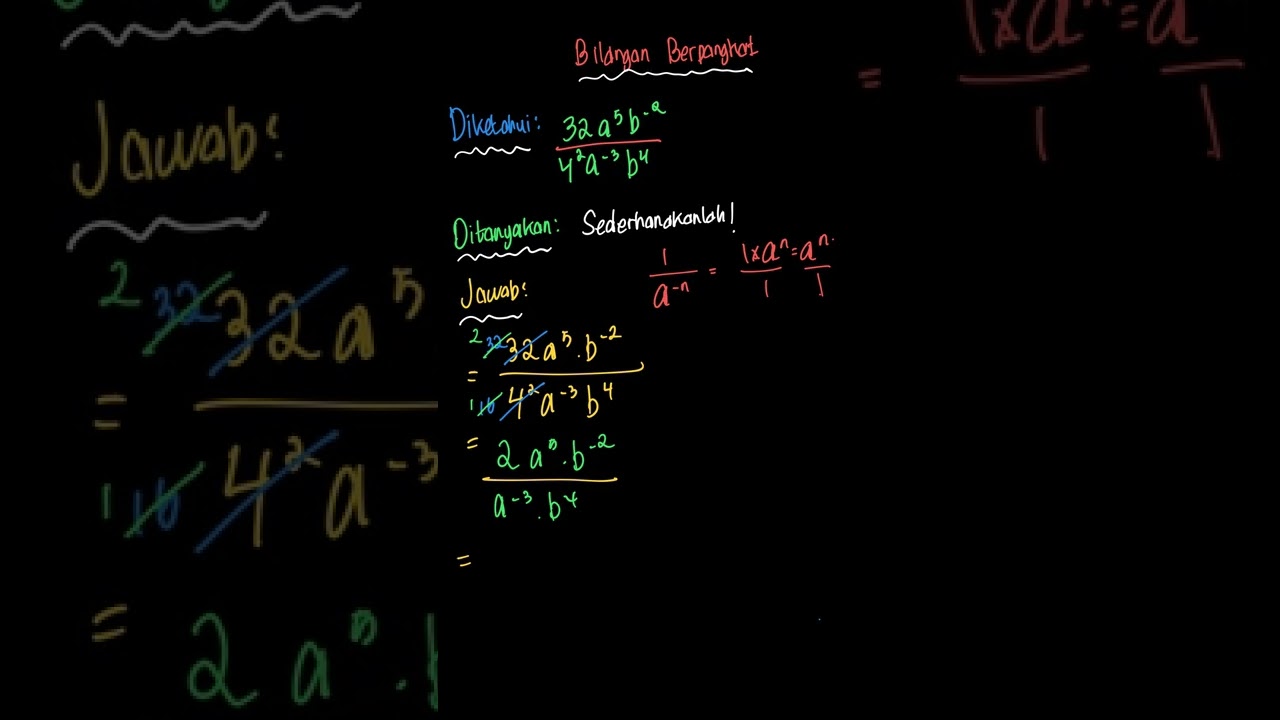 Bilangan Berpangkat
Diketahui: 32a⁵b⁻²
4²a⁻³b⁴
Ditanyakan: Sederhanakanlah!
1/a⁻ⁿ = 1×aⁿ/1 = aⁿ/1
Jawab:
= 2 32 32a⁵.b⁻²
1 16 4²a⁻³b⁴
= 2a⁵.b⁻²
a⁻³.b⁴
=